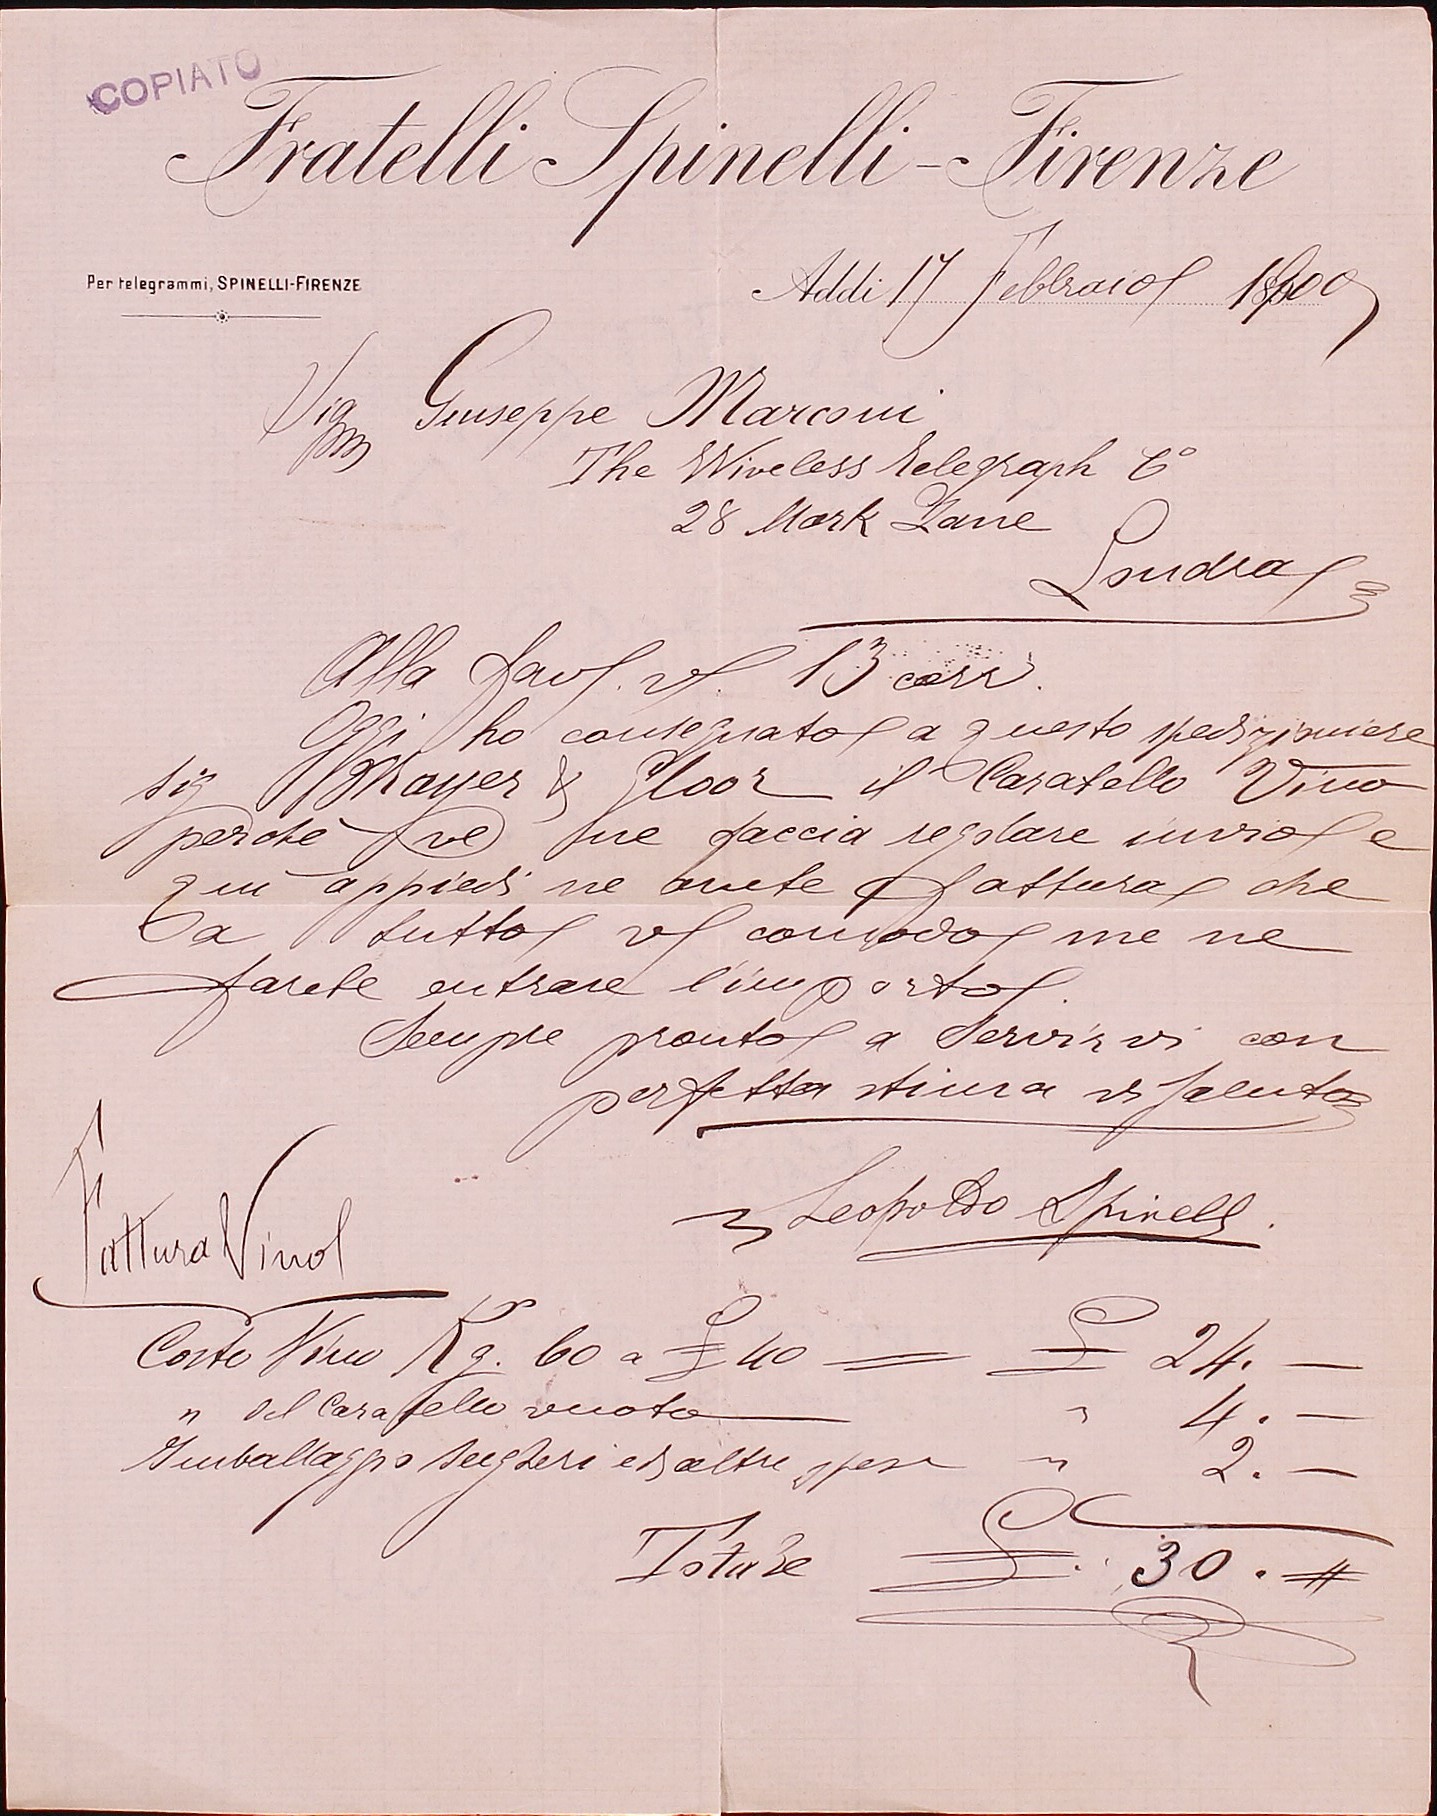 COPIATO
Fratelli Spinelli - Firenze
Per telegrammi, SPINELLI-FIRENZE
Addi 17 Febbraio 1900
Sig Giuseppe Marconi
The Wireless Telegraph Co
28 Mark Lane
Londra
Alla fav. v. 13 corr.
Oggi ho consegnato a questo spedizioniere
sig & Gloor il Caratello Vino
perchè ve ne faccia regolare invio e
qui appiedi ne avete fattura che
a tutto vo comodo me ne
farete entrare l'importo.
Sempre pronto a Servirvi con
perfetta stima vi saluto
Leopoldo Spinelli.
Fattura Vino
Costo Vino Kg. 60 a £ 40 = £ 24. —
" del Caratello vuoto — " 4. —
Imballaggio sugheri ed altre spese " 2. —
Totale £. 30. #